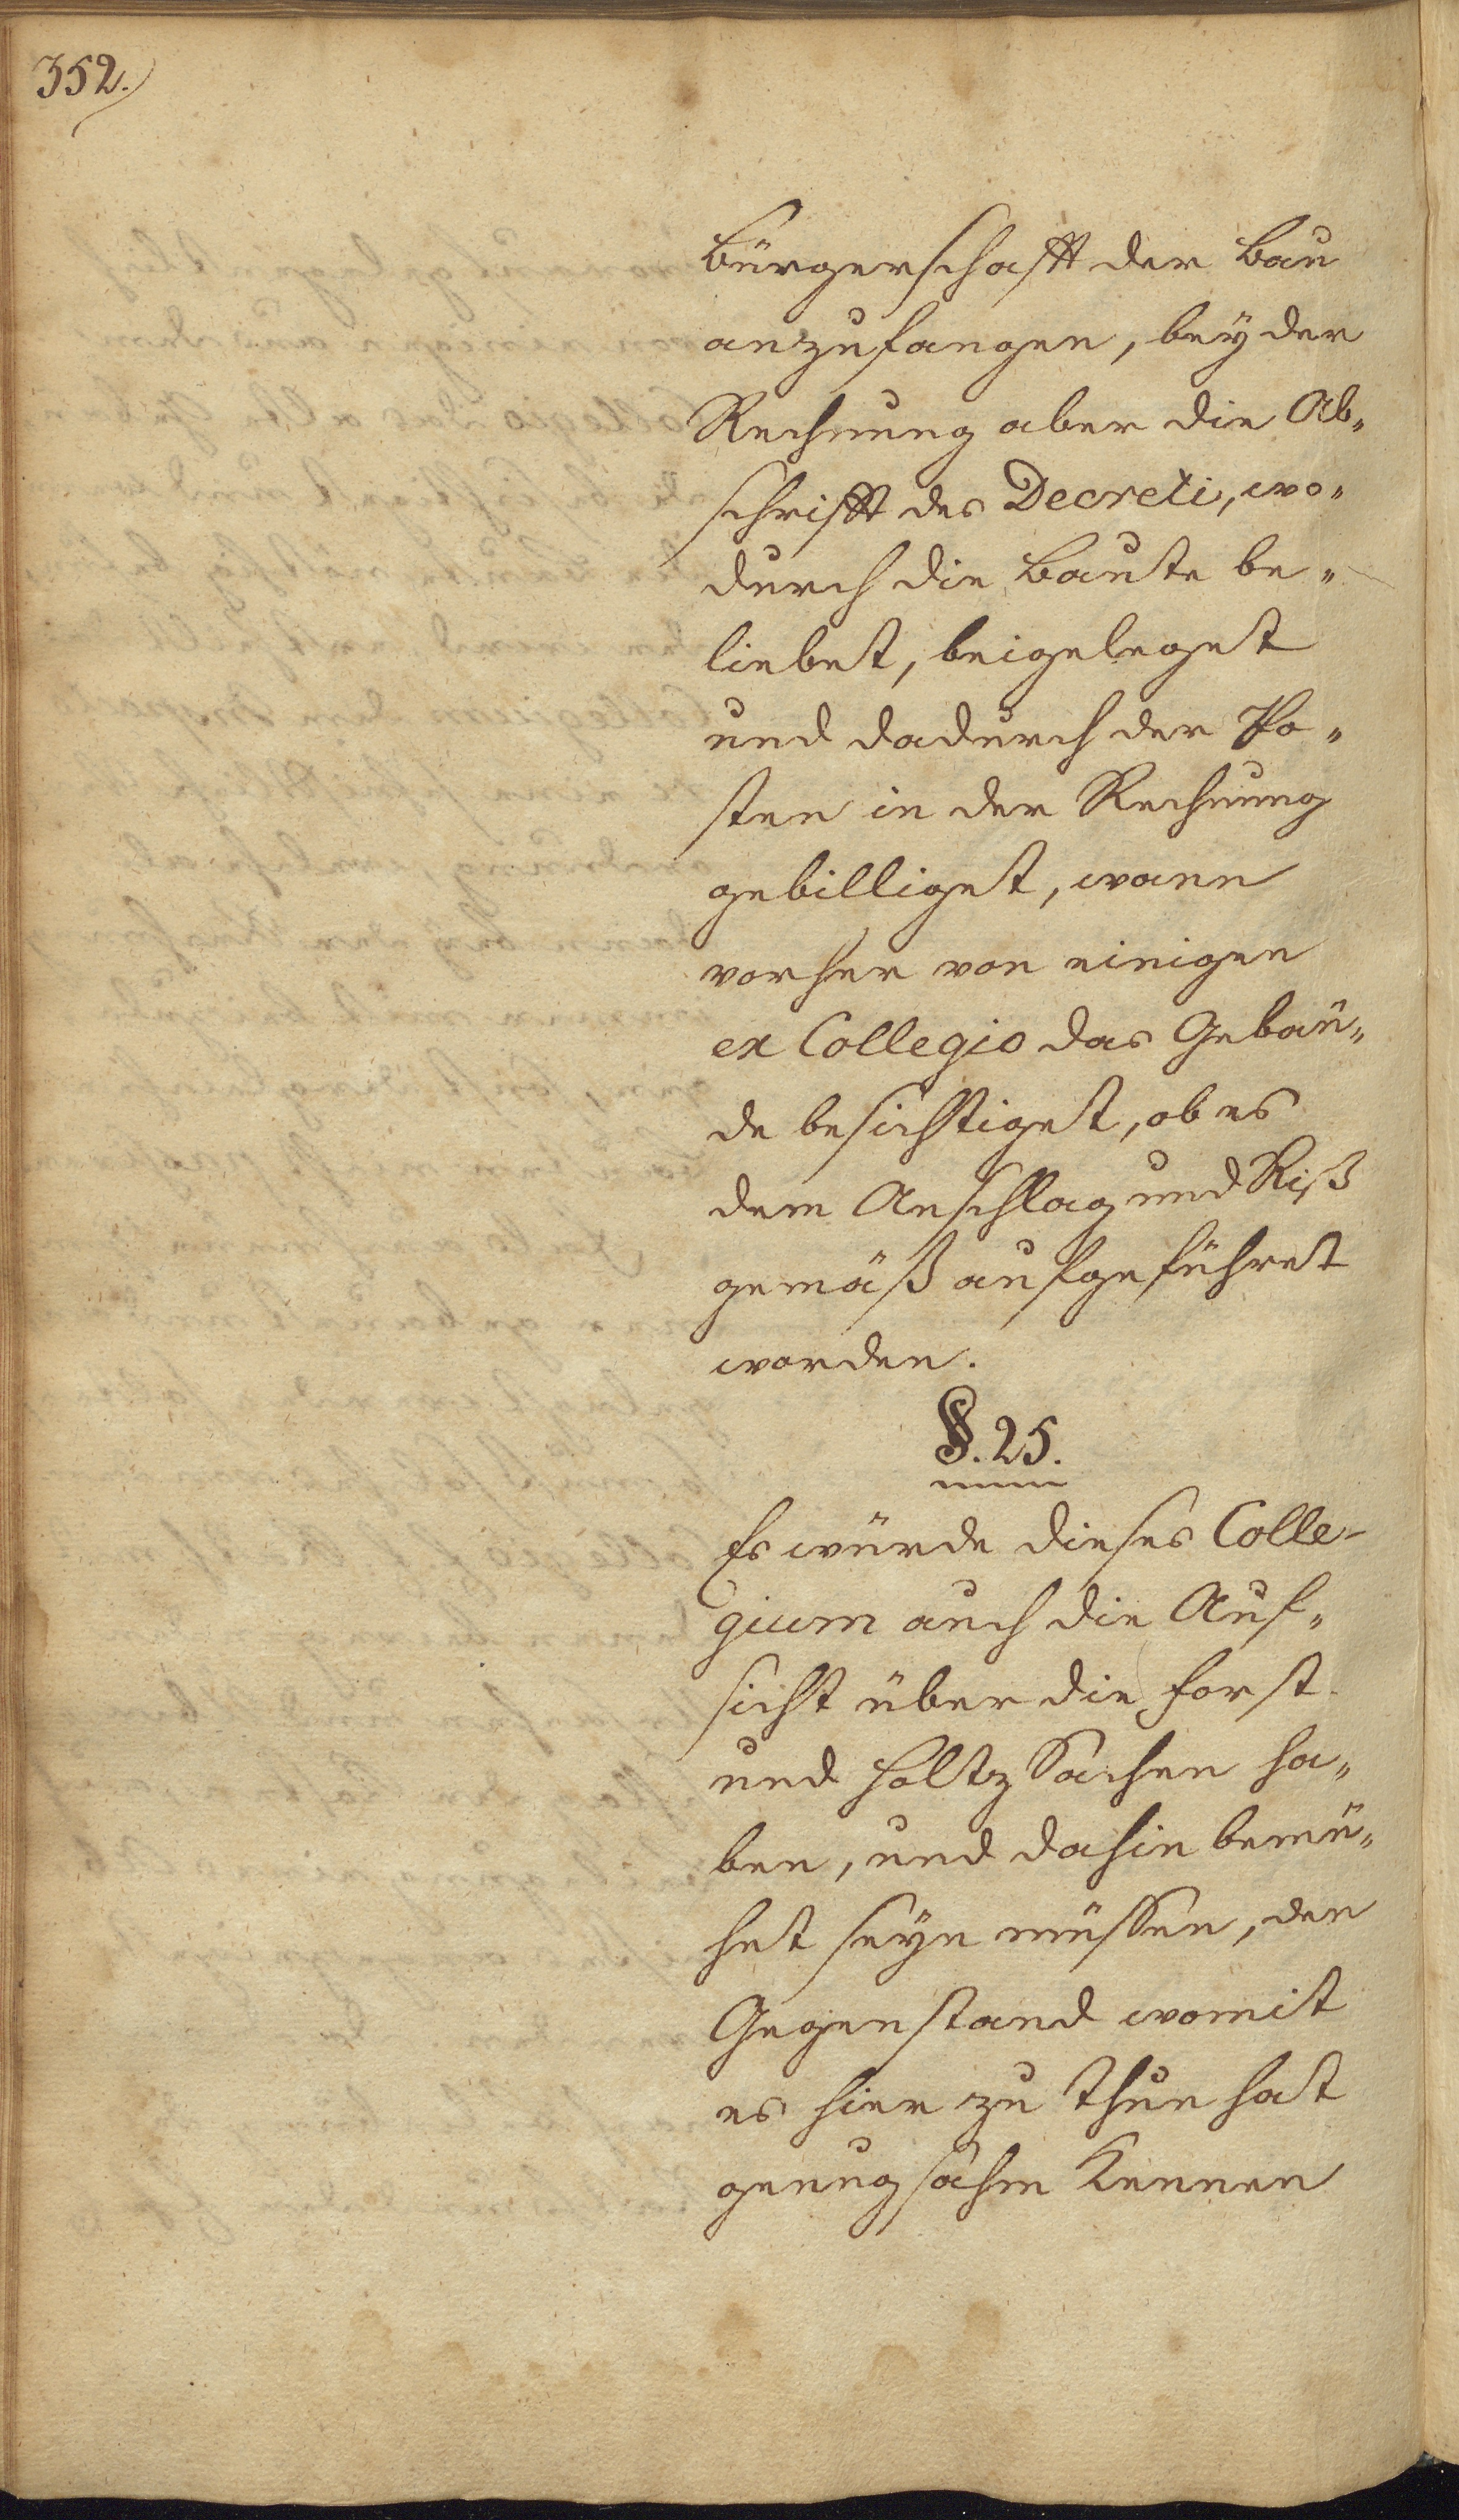 352.
Bürgerschafft der Bau
anzufangen, beÿ der
Rechnung aber die Ab„
schrifft des Decreti, wo„
durch die Baute be„
liebet, beigeleget
und dadurch der Po„
sten in der Rechnung
gebilliget, wann
vorher von einigen
ex Collegio das Gebäu„
de besichtiget, ob es
dem Anschlag und Riß
gemäß aufgeführet
worden.
§. 25.
Es würde dieses Colle-
gium auch die Auf„
sicht über die Forst
und Holtz Sachen ha„
ben, und dahin bemü„
het seÿn müssen, den
Gegenstand womit
es hier zu thun hat
genugsahm Kennen